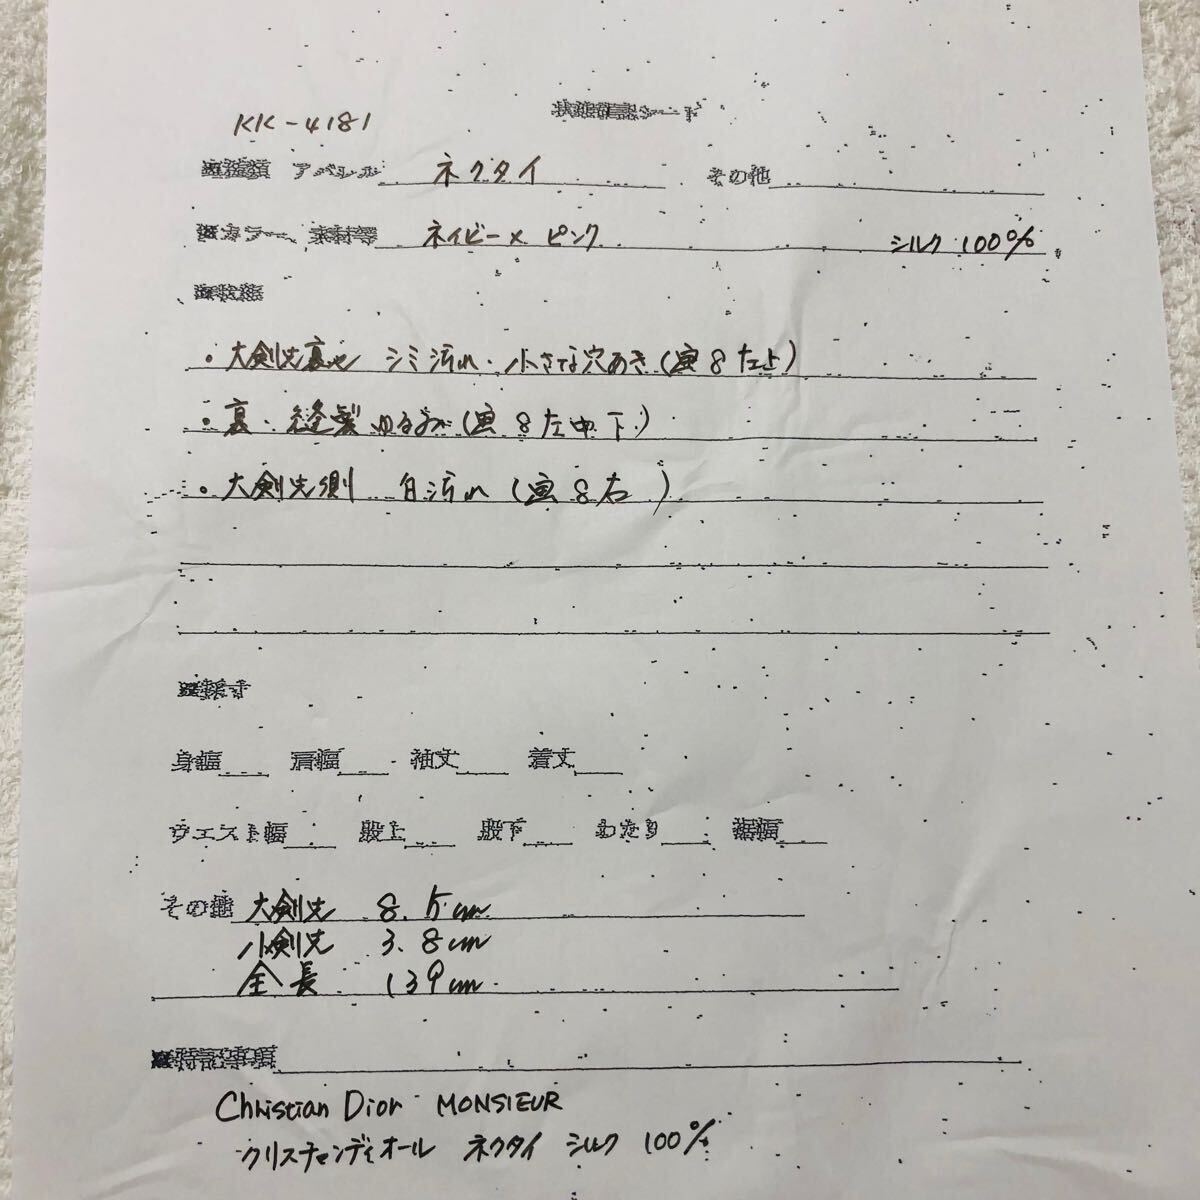 KK-4181
状態確認シート
■種類 アパレル ネクタイ その他
■カラー、素材等 ネイビー×ピンク シルク 100%
■状態
・大剣先裏地 シミ汚れ・小さな穴あき(画8左上)
・裏・縫製ゆるみ(画8左中下)
・大剣先側 白汚れ(画8右)
■採寸
身幅 肩幅 袖丈 着丈
ウエスト幅 股上 股下 わたり 裾幅
その他 大剣先 8.5cm
小剣先 3.8cm
全長 139cm
■特記事項
Christian Dior MONSIEUR
クリスチャンディオール ネクタイ シルク 100%